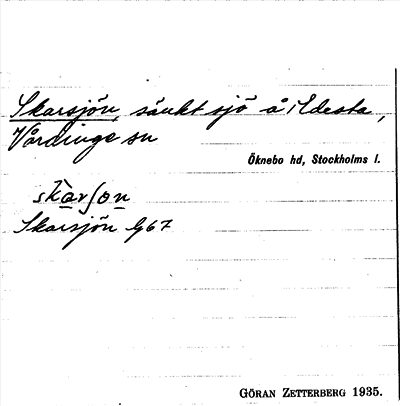 Skarsjön, sänkt sjö å Edesta,
Vårdinge sn
Öknebo hd, Stockholms l.
skàrʃo̱ṉ
Skarsjön G67
GÖRAN ZETTERBERG 1935.